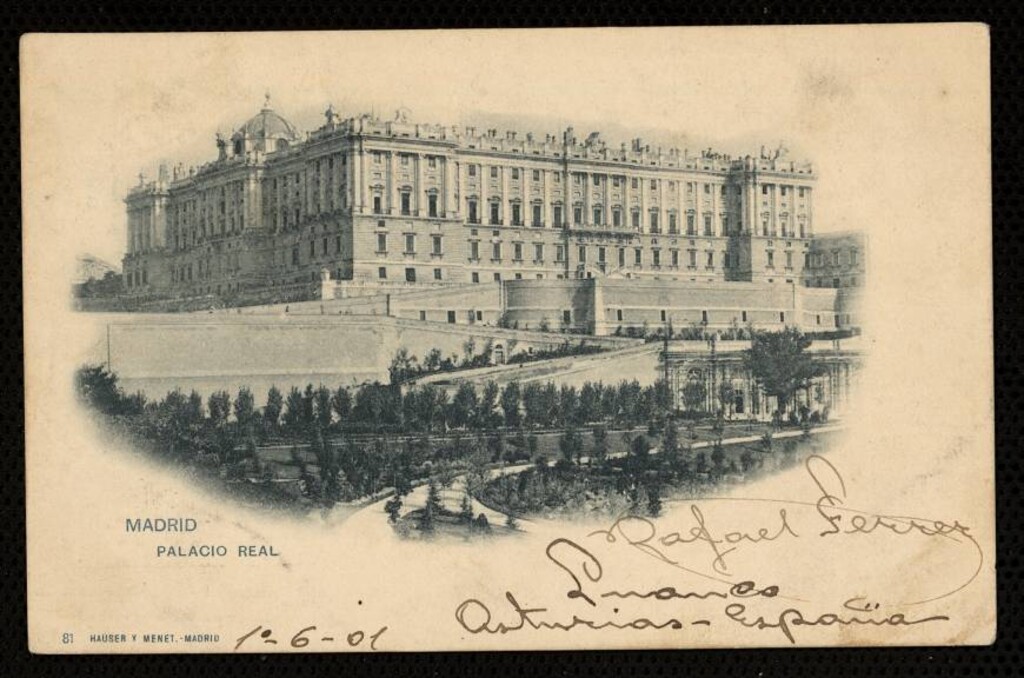 MADRID
PALACIO REAL
Rafael Ferrer
Luanco
Asturias-España
81 HAUSER Y MENET.-MADRID 1º-6-01